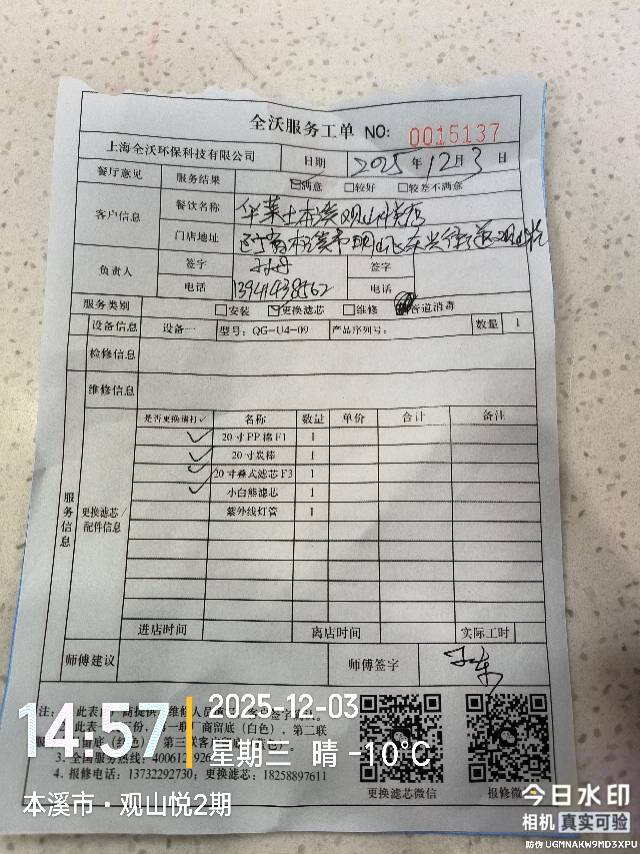 全沃服务工单 NO: 0015137
上海全沃环保科技有限公司 日期 2025年12月3日
餐厅意见 服务结果 ☑满意 □较好 □较差不满意
客户信息 餐饮名称 华莱士本溪观山悦店
门店地址 辽宁省本溪市明山区东兴街道观山悦
负责人 签字 签字
电话 13941438562 电话
服务类别 □安装 ☑更换滤芯 □维修 管道消毒
设备信息 设备一 型号: QG-U4-09 产品序列号: 数量 1
检修信息
维修信息
服务信息
更换滤芯/配件信息
是否更换请打✓ 名称 数量 单价 合计 备注
✓ 20寸PP棉F1 1
✓ 20寸炭棒 1
✓ 20寸叠式滤芯F3 1
✓ 小白熊滤芯 1
紫外线灯管 1
进店时间 离店时间 实际工时
师傅建议 师傅签字
注:
3. 全国服务热线: 4006
4. 报修电话: 13732292730; 更换滤芯: 18258897611
更换滤芯微信 报修微
14:57
2025-12-03
星期三 晴 -10℃
本溪市·观山悦2期
今日水印
相机 真实可验
防伪 UGMNAKW9MD3XPU